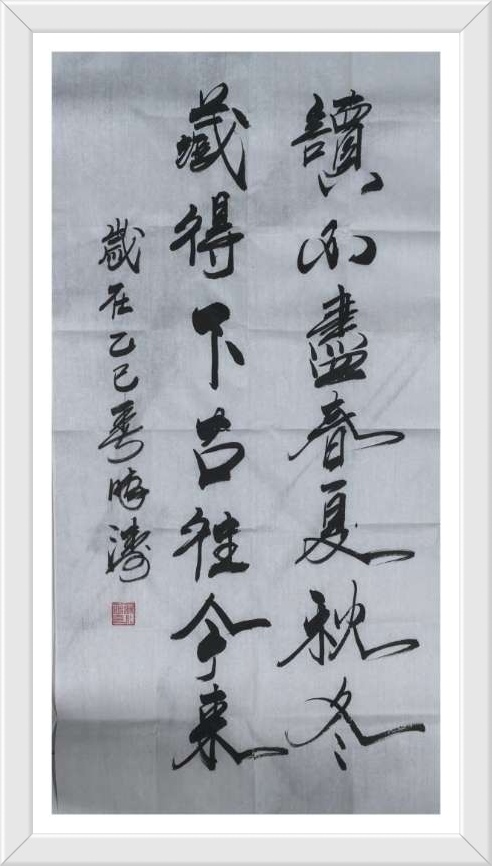 讀不盡春夏秋冬
藏得下古往今來
歲在乙巳 濤